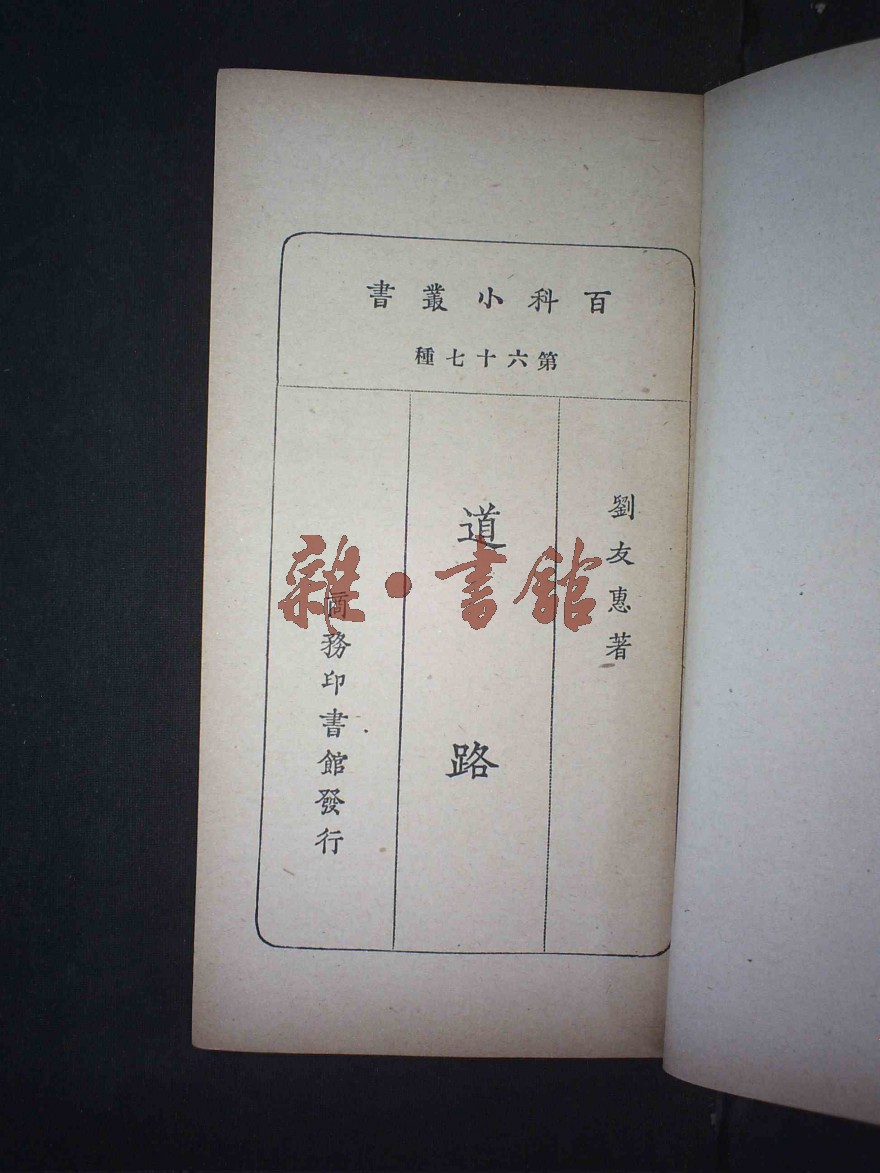 百科小叢書
第六十七種
劉友惠著
道路
商務印書館發行
雜·書館